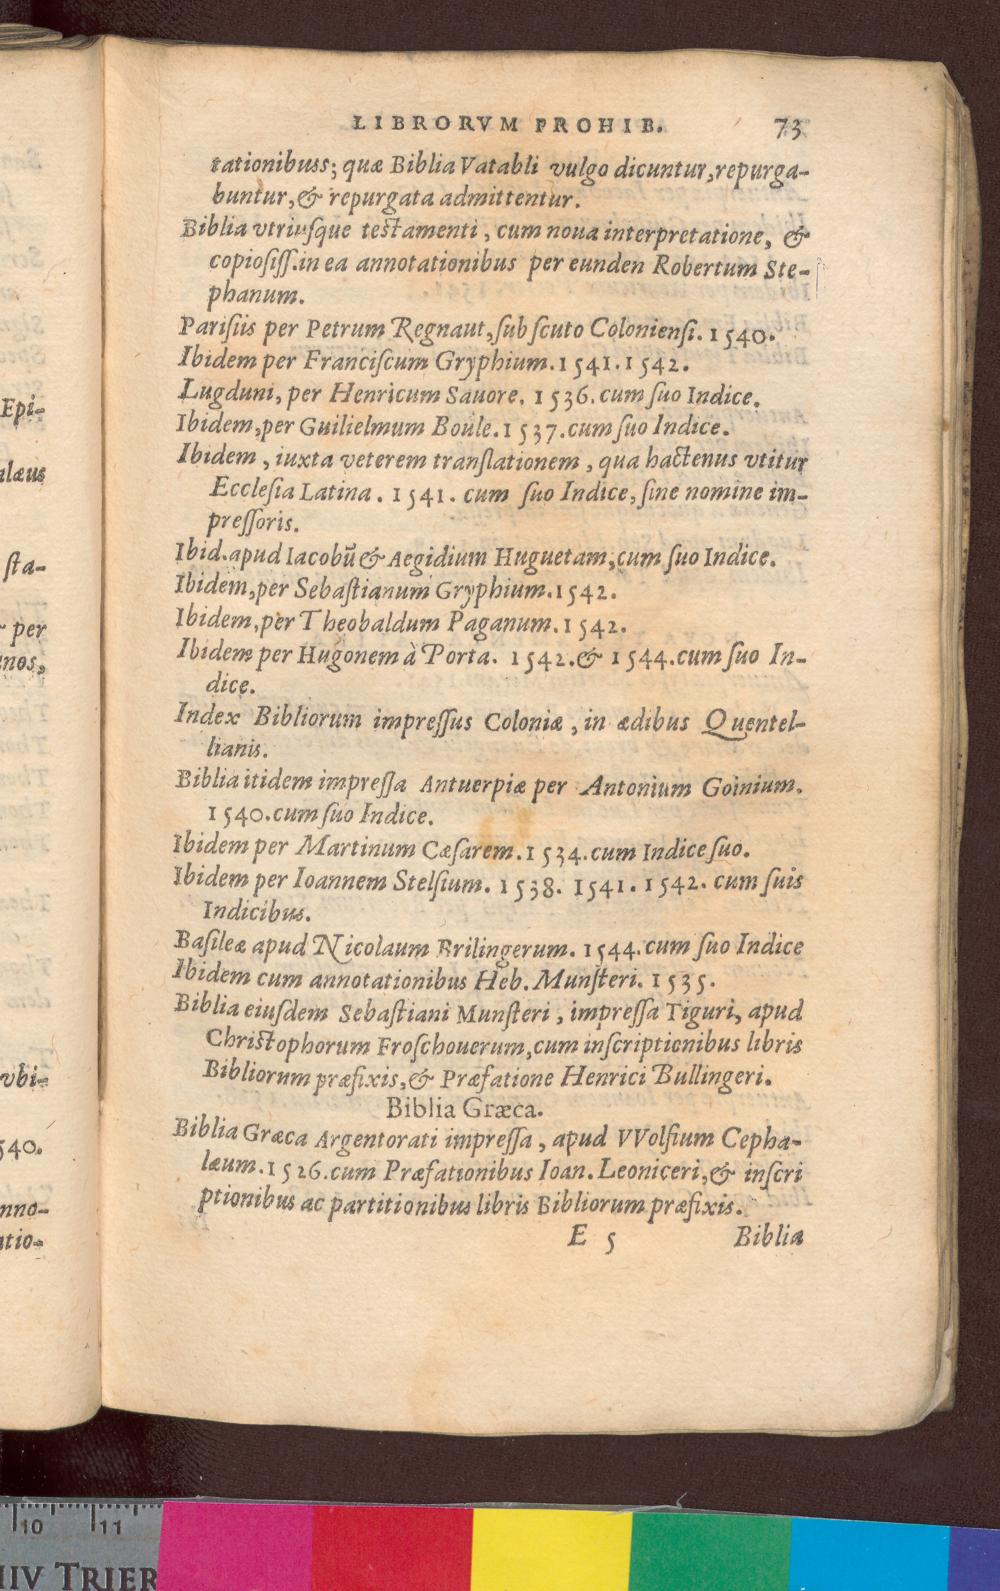 Epi-
læus
sta-
per
nos,
vbi-
540.
nno-
tio-
LIBRORVM PROHIB. 73
tationibuss; quæ Biblia Vatabli vulgo dicuntur, repurga-
buntur, & repurgata admittentur.
Biblia vtriusque testamenti, cum noua interpretatione, &
copiosiss. in ea annotationibus per eunden Robertum Ste-
phanum.
Parisiis per Petrum Regnaut, sub scuto Coloniensi. 1540.
Ibidem per Franciscum Gryphium. 1541. 1542.
Lugduni, per Henricum Sauore. 1536. cum suo Indice.
Ibidem, per Guilielmum Boule. 1537. cum suo Indice.
Ibidem, iuxta veterem translationem, qua hactenus vtitur
Ecclesia Latina. 1541. cum suo Indice, sine nomine im-
pressoris.
Ibid. apud Iacobū & Aegidium Huguetam, cum suo Indice.
Ibidem, per Sebastianum Gryphium. 1542.
Ibidem, per Theobaldum Paganum. 1542.
Ibidem per Hugonem à Porta. 1542. & 1544. cum suo In-
dice.
Index Bibliorum impressus Coloniæ, in ædibus Quentel-
lianis.
Biblia itidem impressa Antuerpiæ per Antonium Goinium.
1540. cum suo Indice.
Ibidem per Martinum Cæsarem. 1534. cum Indice suo.
Ibidem per Ioannem Stelsium. 1538. 1541. 1542. cum suis
Indicibus.
Basileæ apud Nicolaum Brilingerum. 1544. cum suo Indice
Ibidem cum annotationibus Heb. Munsteri. 1535.
Biblia eiusdem Sebastiani Munsteri, impressa Tiguri, apud
Christophorum Froschouerum, cum inscriptionibus libris
Bibliorum præfixis, & Præfatione Henrici Bullingeri.
Biblia Græca.
Biblia Græca Argentorati impressa, apud VVolfium Cepha-
læum. 1526. cum Præfationibus Ioan. Leoniceri, & inscri
ptionibus ac partitionibus libris Bibliorum præfixis.
E 5 Biblia
10 11
IV TRIER